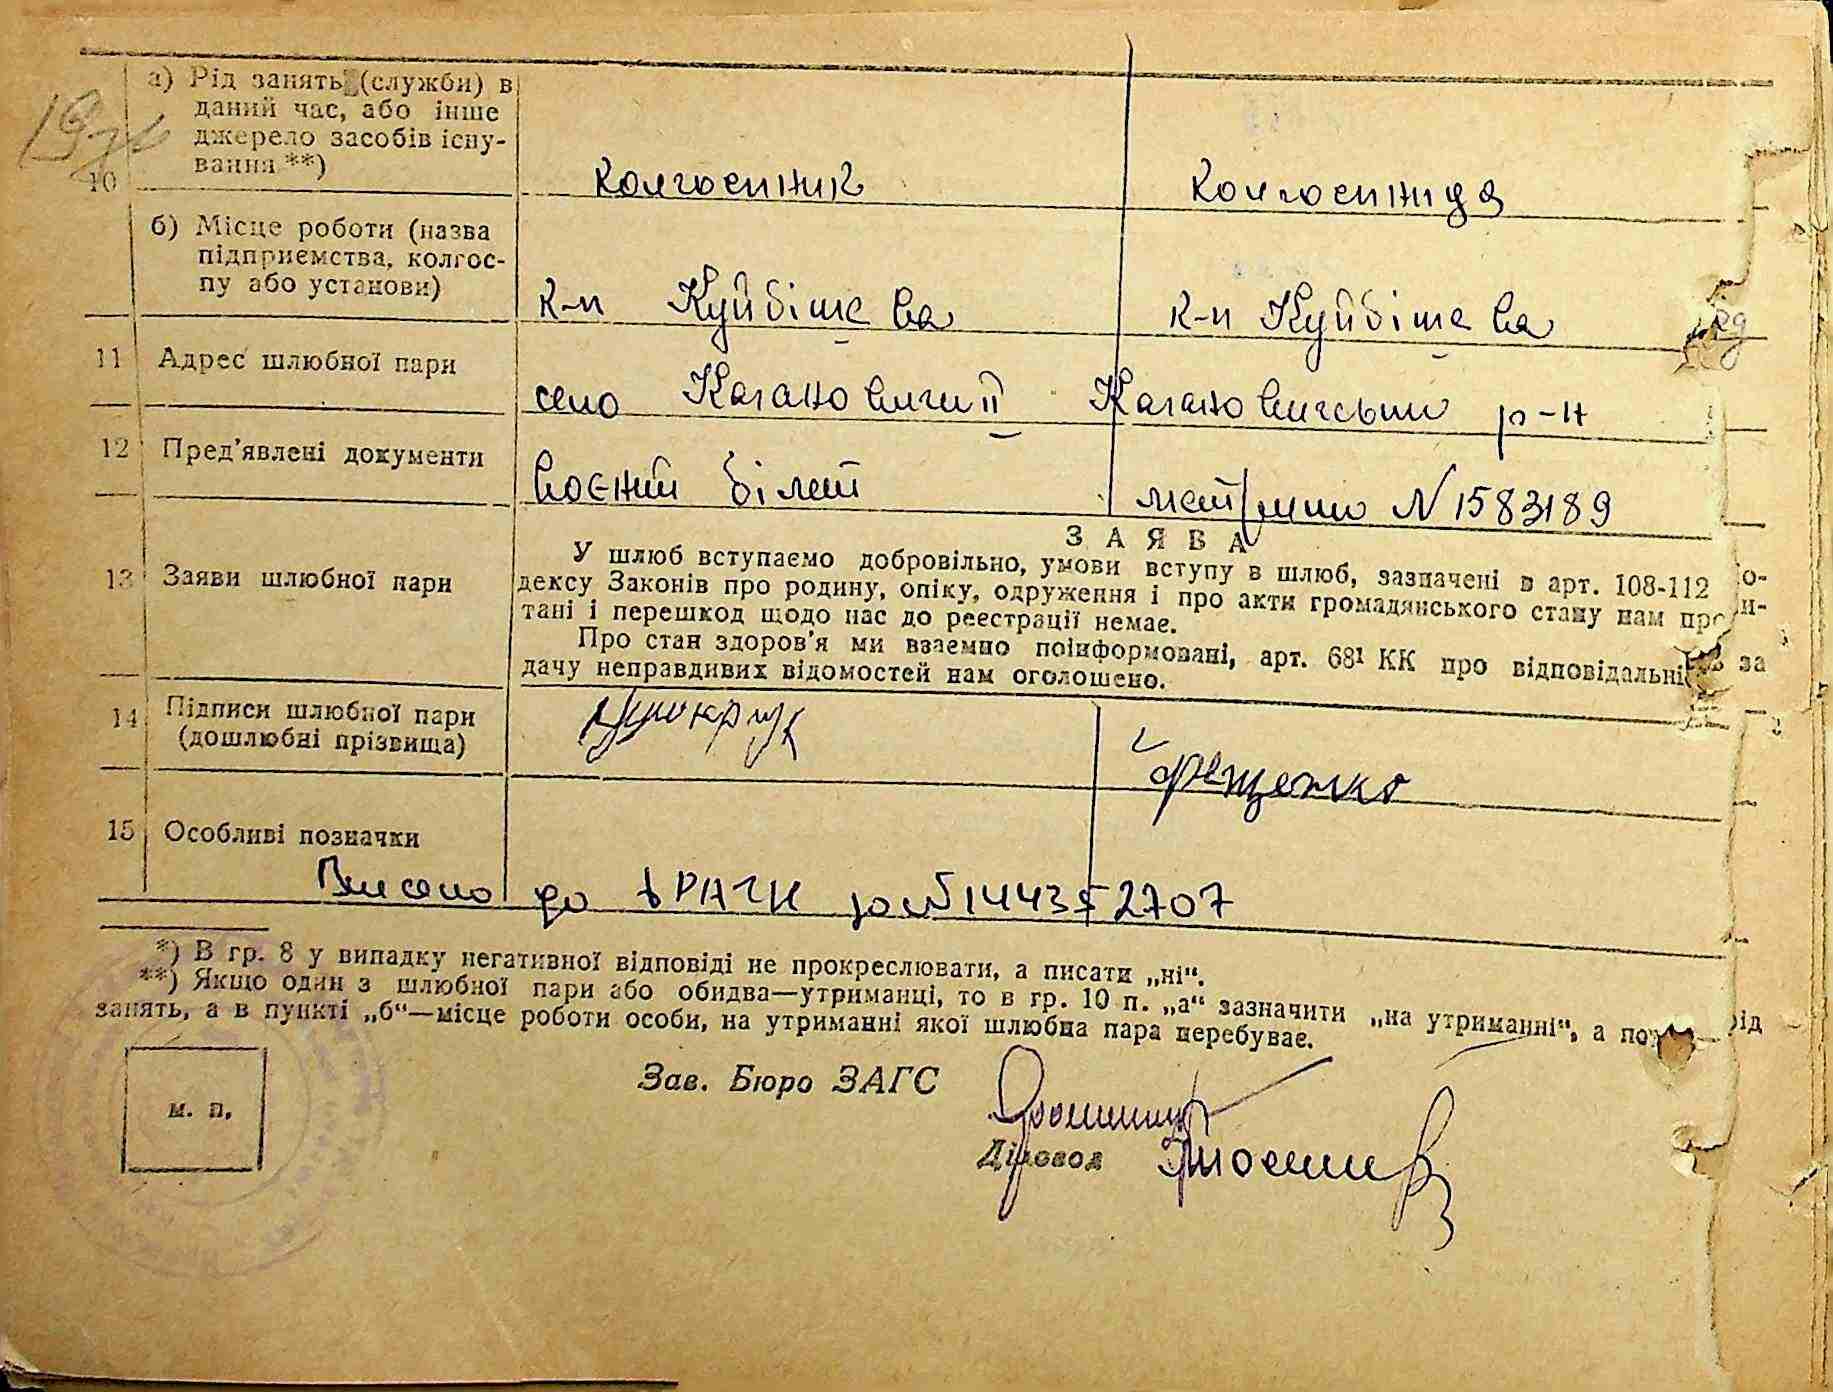 10
а) Рід занять (служби) в
даний час, або інше
джерело засобів існу-
вання **)
колгоспник колгоспниця
б) Місце роботи (назва
підприємства, колгос-
пу або установи)
к-п Куйбішева к-п Куйбішева
11 Адрес шлюбної пари
село Кагановичи II Кагановичським р-н
12 Пред'явлені документи
воєний білет метрики N 1583189
ЗАЯВА
13 Заяви шлюбної пари
У шлюб вступаємо добровільно, умови вступу в шлюб, зазначені в арт. 108-112 о-
дексу Законів про родину, опіку, одруження і про акти громадянського стану нам про и-
тані і перешкод щодо нас до реєстрації немає.
Про стан здоров'я ми взаємно поінформовані, арт. 68¹ КК про відповідальні за
дачу неправдивих відомостей нам оголошено.
14 Підписи шлюбної пари
(дошлюбні прізвища)
Цимокрук
Єрещенко
15 Особливі позначки
Внесено до ДРАЦС за № 14435 2707
*) В гр. 8 у випадку негативної відповіді не прокреслювати, а писати „ні“.
**) Якщо один з шлюбної пари або обидва—утриманці, то в гр. 10 п. „а“ зазначити „на утриманні“, а рід
занять, а в пункті „б“—місце роботи особи, на утриманні якої шлюбна пара перебуває.
Зав. Бюро ЗАГС
м. п.
Діловод